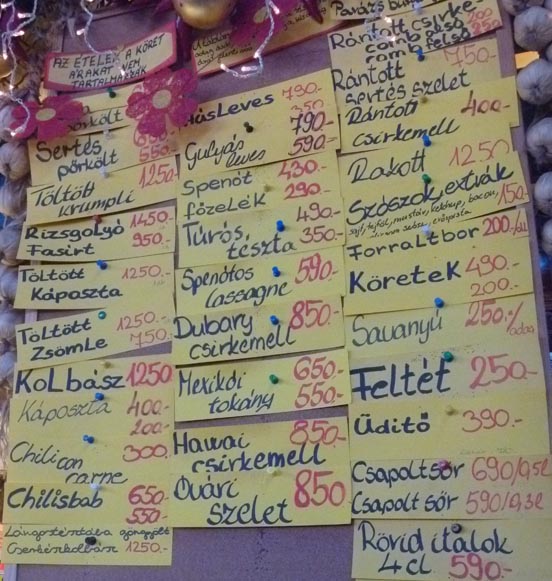 AZ ÉTELEK A KÖRET
ÁRAKAT NEM
TARTALMAZZÁK
Sertés
pörkölt 550.-
Töltött 1250.-
krumpli
Rizsgolyó 1450.-
Fasirt 950.-
Töltött 1250.-
Káposzta
Töltött 1250.-
Zsömle 750.-
Kolbász 1250
Káposzta 400.-
200.-
Chili con 300.-
carne
Chilisbab 650.-
550.-
Lángostésztába göngyölt
Cserkészkolbász 1250.-
Húsleves 790.-
350.-
Gulyás 790.-
leves 590.-
Spenót 430.-
főzelék 290.-
Túrós 490.-
tészta 350.-
Spenótos 590.-
lassagne
Dubary 850.-
csirkemell
Mexikói 650.-
tokány 550.-
Hawai 850.-
csirkemell
Óvári 850.-
szelet
Rántott csirke-
comb alsó
comb felső
Rántott 750.-
sertés szelet
Rántott 400.-
csirkemell
Rakott 1250.-
Szószok, extrák
150.-
Forraltbor 200.-/dl
Köretek 490.-
200.-
Savanyú 250.-/adag
Feltét 250.-
Üdítő 390.-
Csapolt sör 690/0,5l
Csapolt sör 590/0,3l
Rövid italok
4 cl 590.-